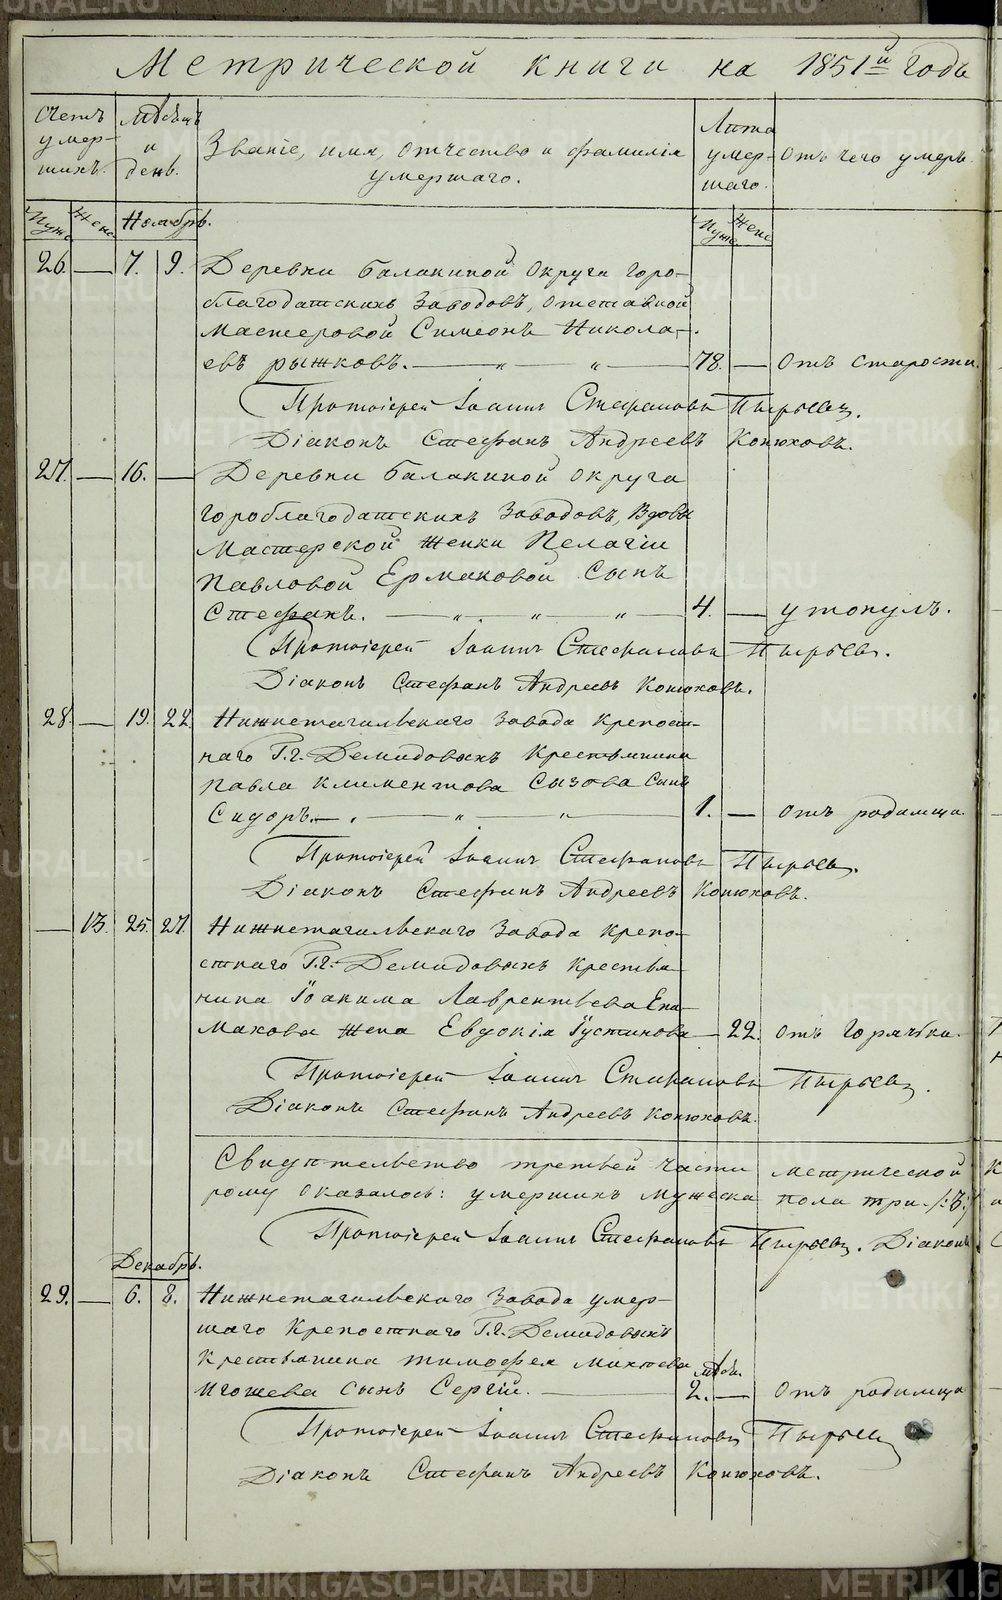 Метрической книги на 1851й годъ
Счетъ умер-
шихъ.
Мѣсяцъ
и
день.
Званіе, имя, отчество и фамилія
умершаго.
Лѣта
умер-
шаго.
Отъ чего умеръ.
Муж. Жен. Ноябрь. Муж. Жен.
26. — 7. 9. Деревни Балакиной Округа Горо-
благодатскихъ Заводовъ, отставной
Мастеровой Симеонъ Никола-
евъ рыжковъ. — 78. — Отъ старости.
Протоіерей Іоаннъ Стефановъ Пырьевъ.
Діаконъ Стефанъ Андреевъ Конюховъ.
27. — 16. — Деревни Балакиной Округа
Гороблагодатскихъ Заводовъ, Вдовы
Мастерской Женки Пелагіи
Павловой Ермаковой Сынъ
Стефанъ. — 4. — утонулъ.
Протоіерей Іоаннъ Стефановъ Пырьевъ.
Діаконъ Стефанъ Андреевъ Конюховъ.
28. — 19. 22. Нижнетагильскаго Завода Крепост-
наго Г.г. Демидовыхъ Крестьянина
Павла Климентова Сызова Сынъ
Сидоръ. — 1. — Отъ родимца.
Протоіерей Іоаннъ Стефановъ Пырьевъ.
Діаконъ Стефанъ Андреевъ Конюховъ.
— 13. 25. 27. Нижнетагильскаго Завода Крепо-
стнаго Г.г. Демидовыхъ Крестья-
нина Іоакима Лаврентьева
Жена Евдокія Іустинова — 22. Отъ Горячки.
Протоіерей Іоаннъ Стефановъ Пырьевъ.
Діаконъ Стефанъ Андреевъ Конюховъ.
Свидѣтельство третьей части метрической
рому Оказалось: умершихъ мужеска пола три /:3:/
Протоіерей Іоаннъ Стефановъ Пырьевъ. Діаконъ
Декабрь.
29. — 6. 8. Нижнетагильскаго Завода умер-
шаго Крепостнаго Г.г. Демидовыхъ
Крестьянина тимофея
Игошева сынъ Сергій. — мѣс. 2. — Отъ родимца
Протоіерей Іоаннъ Стефановъ Пырьевъ
Діаконъ Стефанъ Андреевъ Конюховъ.
METRIKI.GASO-URAL.RU